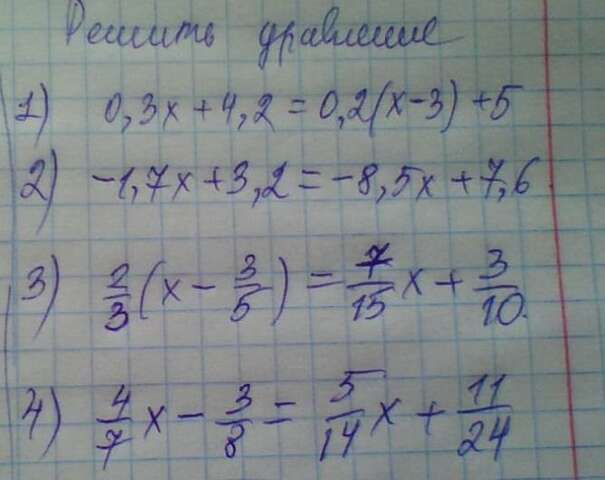 Решить уравнение
1) 0,3x + 4,2 = 0,2(x-3) + 5
2) -1,7x + 3,2 = -8,5x + 7,6
3) 2/3 (x - 3/5) = 7/15 x + 3/10.
4) 4/7 x - 3/8 = 5/14 x + 11/24